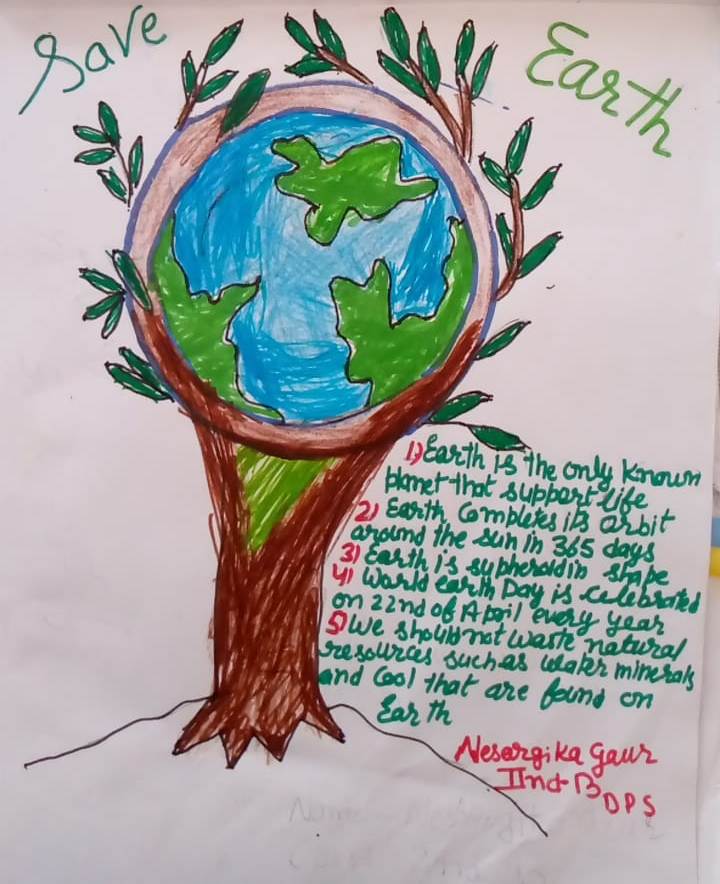 Save Earth
1) Earth is the only known
planet that support life
2) Earth completes its orbit
around the sun in 365 days
3) Earth is supheroid in shape
4) World earth Day is celebrated
on 22nd of April every year
5) We should not waste natural
resources such as water minerals
and Cool that are found on
Earth
Nesargika Gaur
IInd B
DPS